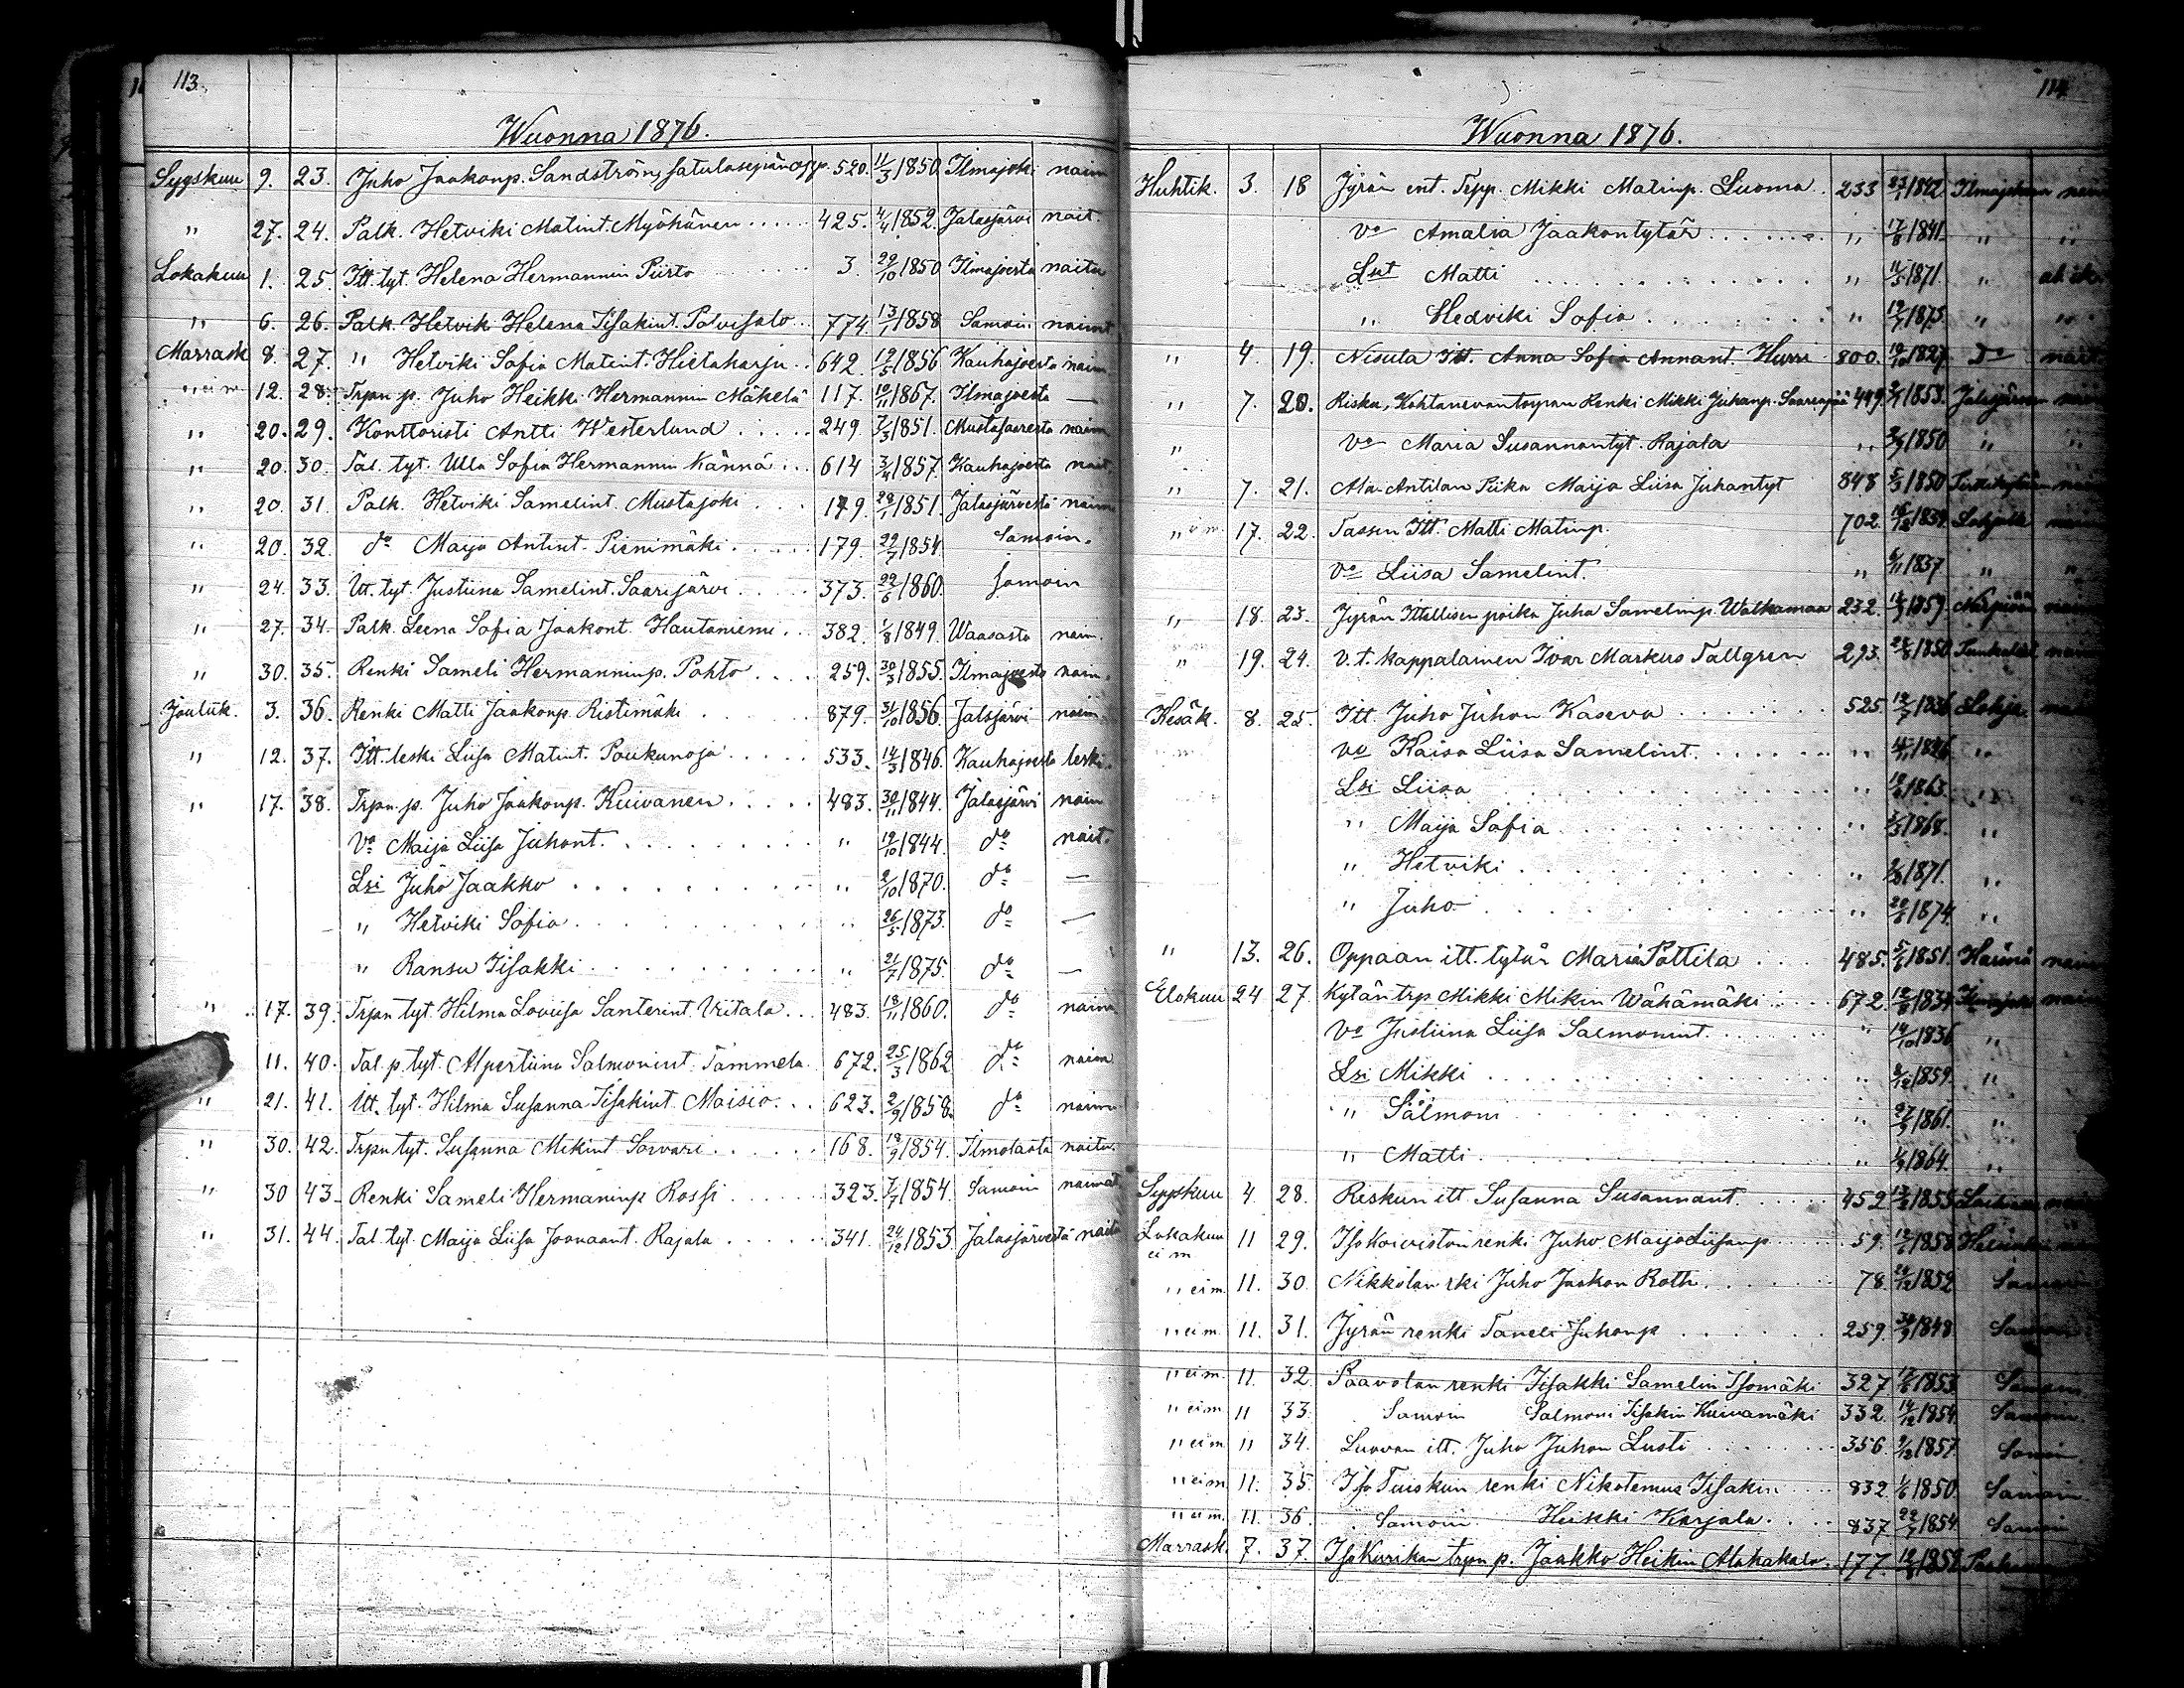 113.
Wuonna 1876.
Sygskuu 9. 23. Juho Jaakonp. Sandström, satulasepänopp. 520. 11/3 1850 Ilmajoki naim
" 27. 24. Palk. Hetviki Matint. Myöhänen 425. 4/4 1852. Jalasjärvi nait.
Lokakuu 1. 25. Itt. tyt. Helena Hermannin Piirto 3. 29/10 1850 Ilmajoesta naitu
" 6. 26. Palk. Hetvik Helena Iisakint. Polvisalo 774 13/1 1858 Samoin naimt
Marrask 8. 27. " Hetviki Sofia Matint. Hietaharju 642. 12/5 1856 Kauhajoesta naim
" ei m. 12. 28. Trpn p. Juho Heikki Hermannin Mäkelä 117. 10/11 1867. Ilmajoesta —
" 20. 29. Konttoristi Antti Westerlund 249. 7/3 1851. Mustasaaresta naim
" 20. 30. Tal. tyt. Ulla Sofia Hermannin Kännä 614 3/4 1857. Kauhajoesta nait.
" 20. 31. Palk. Hetviki Samelint. Mustajoki 179. 28/1 1851. Jalasjärvestä naim
" 20. 32. do Maija Antint. Pienimäki 179. 22/7 1854. Samoin.
" 24. 33. Itt. tyt. Justiina Samelint. Saarijärvi 373. 22/6 1860. Samoin
" 27. 34. Palk. Leena Sofia Jaakont. Hautaniemi 382. 1/8 1849. Waasasta naim.
" 30. 35. Renki Sameli Hermanninp. Pohto 259. 30/3 1855. Ilmajoesta naim.
Jouluk. 3. 36. Renki Matti Jaakonp. Ristimäki 879. 31/10 1856. Jalsjärvi naim
" 12. 37. Itt. leski Liisa Matint. Poukunoja 533. 14/3 1846. Kauhajoesta leski.
" 17. 38. Trpn. p. Juho Jaakonp. Kuivanen 483. 30/11 1844. Jalasjärvi nain
Vo Maija Liisa Juhont. " 19/10 1844. do nait.
Lsi Juho Jaakko " 2/10 1870. do —
" Hetviki Sofia " 26/5 1873. do —
" Ransu Iisakki " 21/7 1875. do —
" 17. 39. Trpn tyt. Hilma Lovisa Santerint. Uitala 483. 18/11 1860. do naim
11. 40. Tal. p. tyt. Alpertiina Salmonint. Tammela 672. 25/3 1862 do naim
" 21. 41. Itt. tyt. Hilma Susanna Iisakint. Maisio 623. 2/9 1858. do naim
" 30. 42. Trpn tyt. Susanna Mikint Sorvari 168. 18/9 1854. naitu.
" 30 43. Renki Sameli Hermaninp Rossi 323. 7/7 1854. Samoin naimat
" 31. 44. Tal. tyt. Maija Liisa Joonaant. Rajala 341. 24/12 1853. Jalasjärvestä naitu
114
Wuonna 1876.
Huhtik. 3. 18 Jyrän ent. Tepp. Mikki Matinp. Luoma 233 27/1 1842. Ilmajokeen
Vo Amalia Jaakontytär " 17/8 1841 " "
Lset Matti " 11/5 1871. "
" Hedviki Sofia " 12/7 1875 " "
" 4. 19. Nisula Itt. Anna Sofia Annant. Hurri 800. 19/10 1827. Do
" 7. 20. Riska, Kohtanevantorpan Renki Mikki Juhanp. Saarenpää 449. 1853. Jalasjärven
" Vo Maria Susannantyt. Rajala " 1850 "
" 7. 21. Ala-Antilan Piika Maija Liisa Juhantyt 848 5/3 1850
" ei m. 17. 22. Tassin Itt. Matti Matinp. 702.
Vo Liisa Samelint. " 6/11 1837 " "
" 18. 23. Jyrän Itsellisen poika Juha Samelinp. Walkamaa 232. 1859. Närpiöön
" 19. 24. v. t. kappalainen Ivar Markus Tallgren 293. 1850.
Kesäk. 8. 25. Itt. Juho Juhon Kaseva 525. 1836
Vo Kaisa Liisa Samelint. " "
Lsi Liisa 1863.
" Maija Sofia " 1868. "
" Hetviki " 1871. "
" Juho " 1874. "
" 13. 26. Oppaan itt. tytär Maria Pottila 485. 5/6 1851.
Elokuu 24 27. Kylän trp Mikki Mikin Wähämäki 672.
Vo Justiina Liisa Salmonint " 14/10 1836 "
Lsi Mikki " 1859. "
" Salmoni " 1861. "
" Matti " 1864. "
Sygskuu 4. 28. Reskun itt. Susanna Susannant. 459 1855
Lokakuu ei m 11 29. Iso Koiviston renki Juho Maija Liisanp 59. 1858
" ei m. 11. 30. Nikkolan rki Juho Jaakon Roth 78. 1852
" ei m. 11. 31. Jyrän renki Taneli Juhonp 259. 1848
" ei m. 11. 32. Paavolan renki Iisakki Samelin Isomäki 327 1853
" ei m 11 33. Samoin Salmoni Iisakin Kuivamäki 332. 14/12 1854.
" ei m 11 34. Luovan itt. Juho Juhon Lusti 356. 1857.
" ei m 11. 35. Iso Tuiskun renki Nikotemus Iisakin 832. 1850. Samoin
" ei m. 11. 36. Samoin Heikki Karjala 837 1854. Samoin
Marrask. 7. 37. Iso Kurikan trpn p. Jaakko Heikin Alahakala 177. 1858